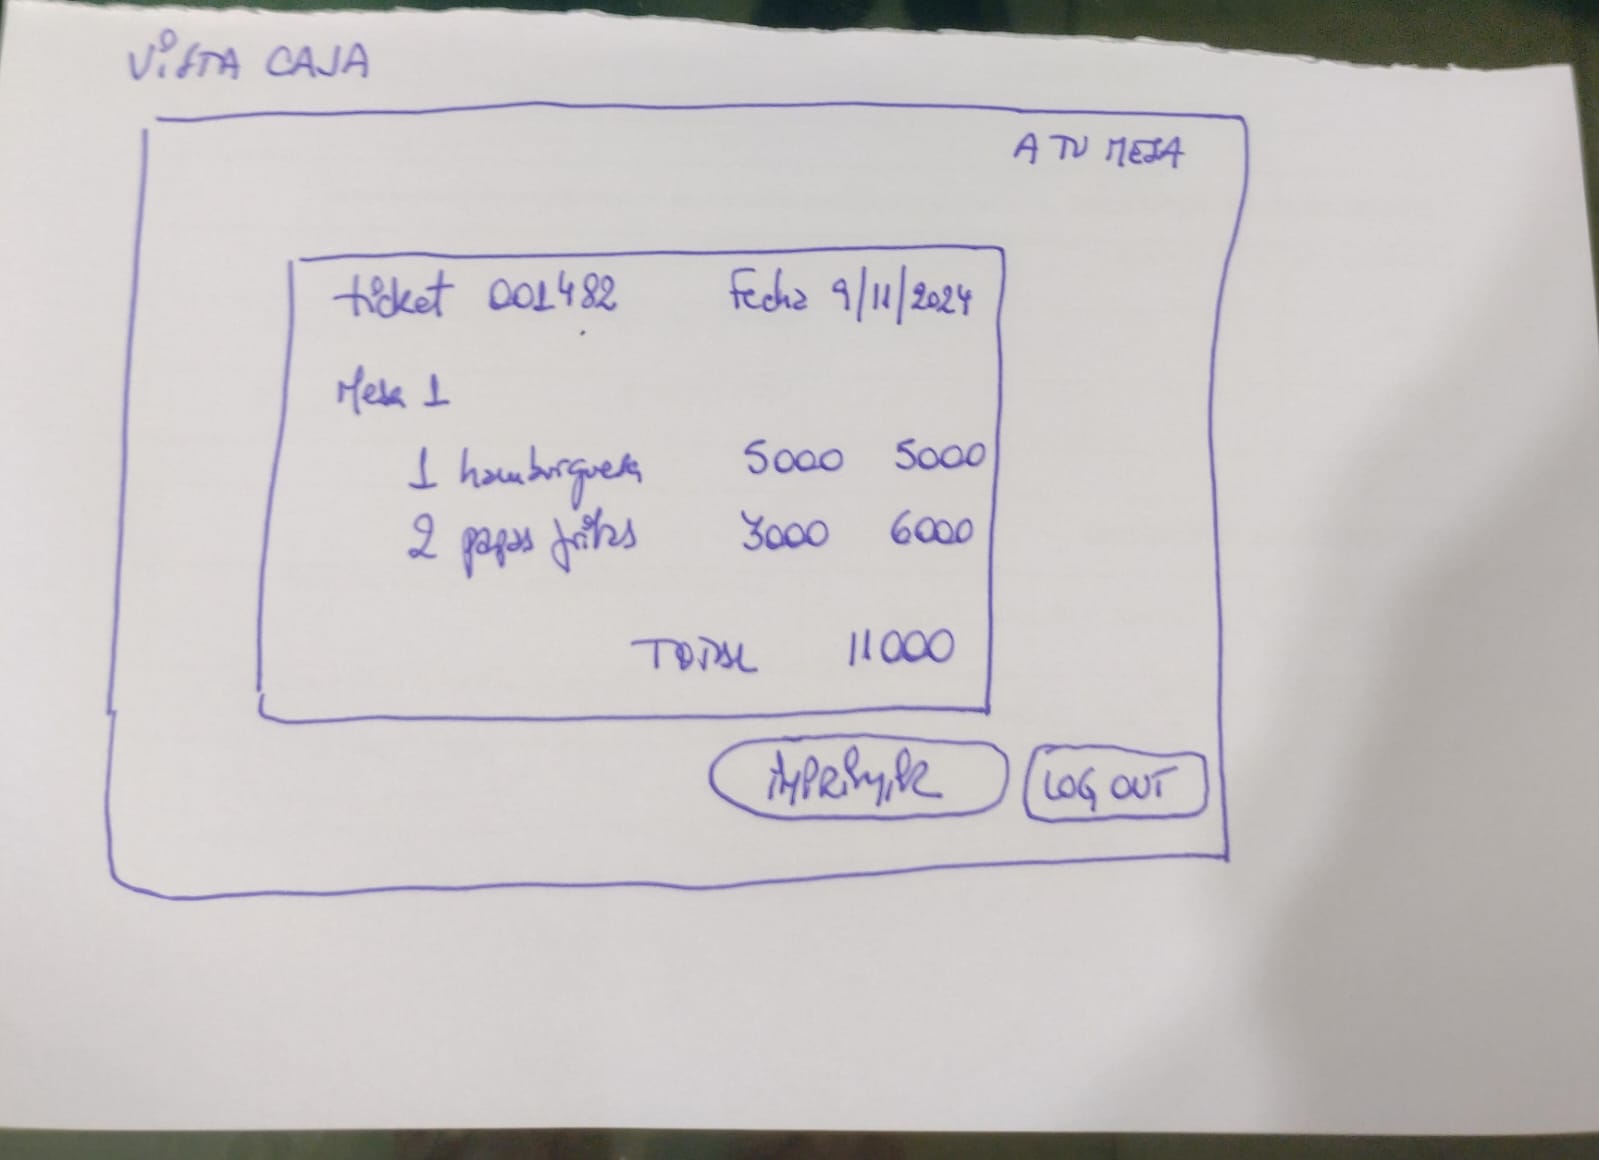 VISTA CAJA
A TU MESA
ticket 001482 Fecha 9/11/2024
Mesa 1
1 hamburguesa 5000 5000
2 papas fritas 3000 6000
TOTAL 11000
IMPRIMIR LOG OUT